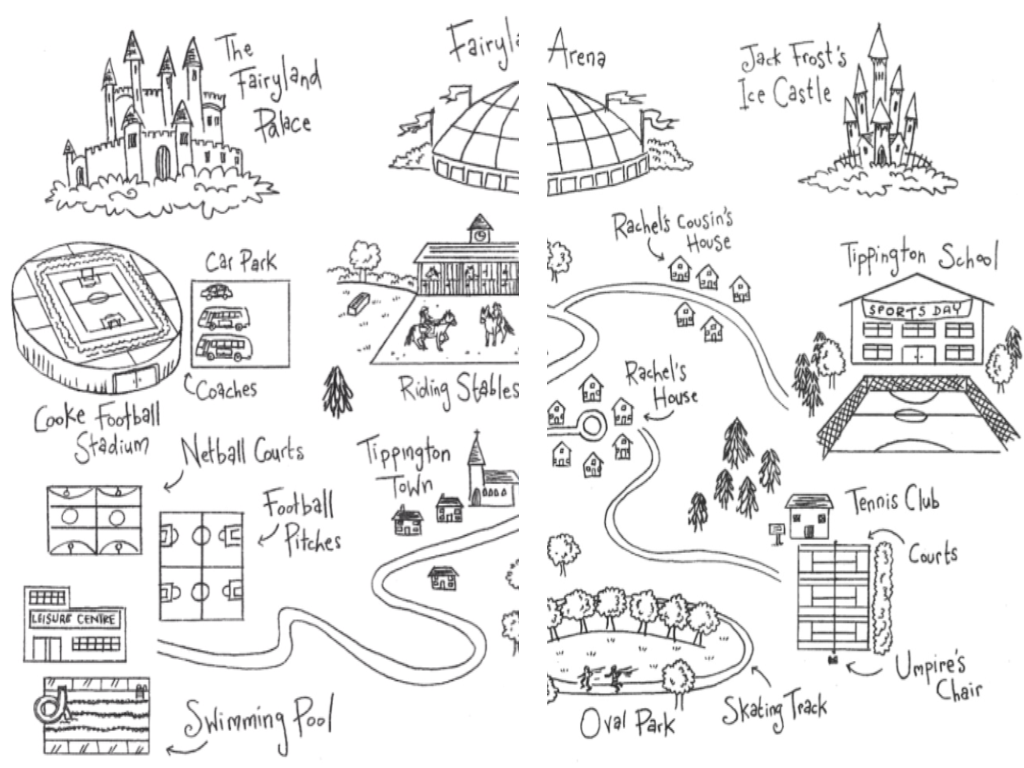 The
Fairyland
Palace
Fairyla
Arena
Jack Frost's
Ice Castle
Rachel's Cousin's
House
Tippington School
SPORTS DAY
Car Park
Coaches
Cooke Football
Stadium
Riding Stables
Rachel's
House
Netball Courts
Football
Pitches
Tippington
Town
Tennis Club
Courts
LEISURE CENTRE
Umpire's
Chair
Swimming Pool
Oval Park
Skating Track